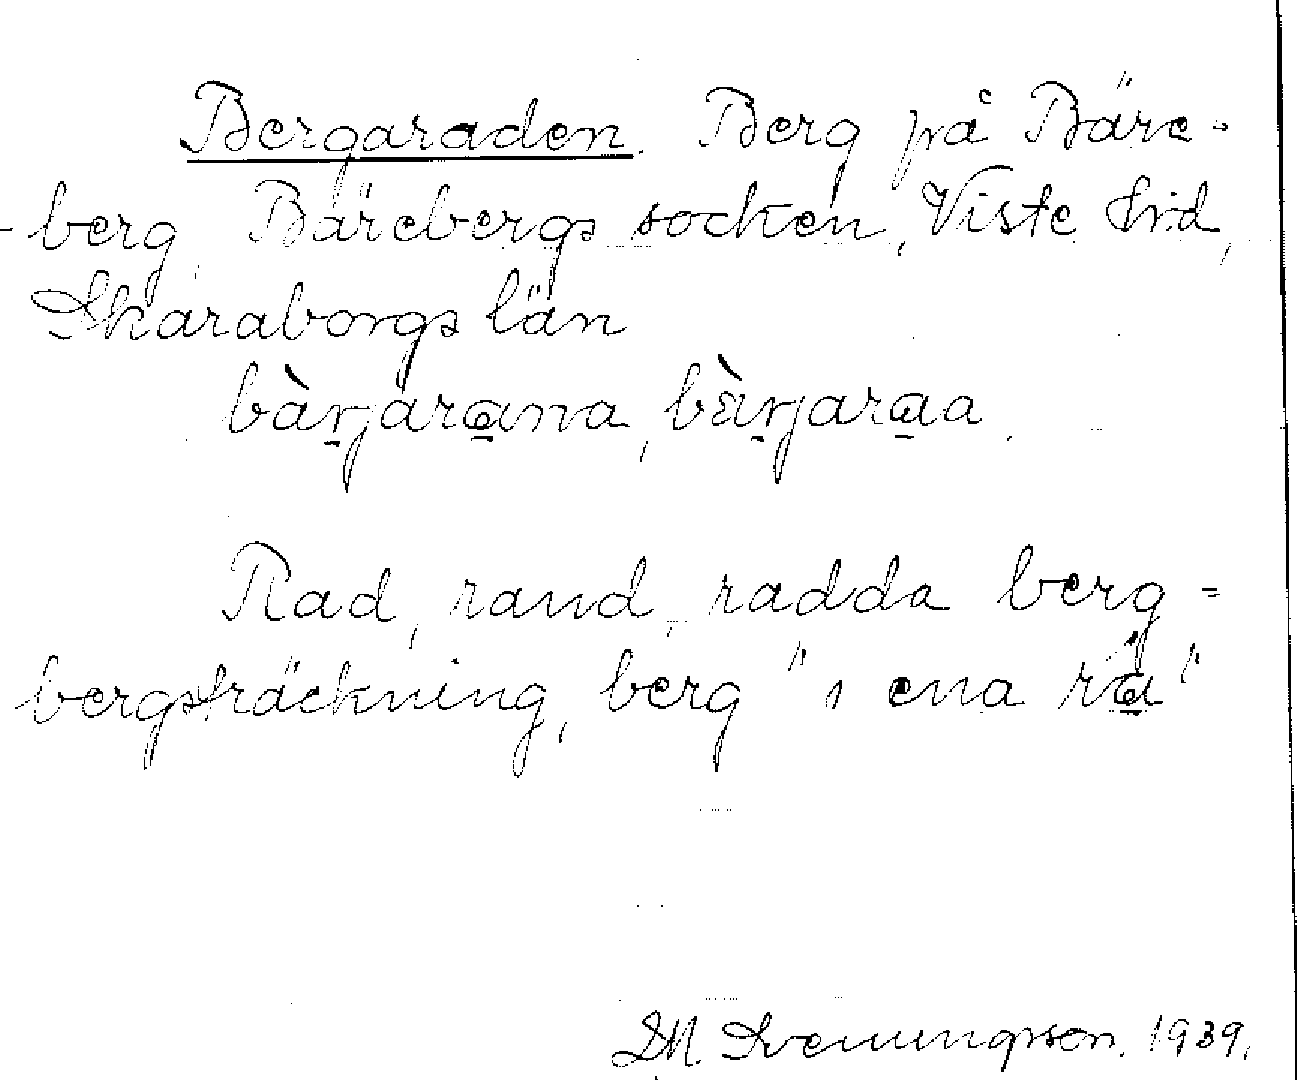 Bergaraden. Berg på Bäre-
-berg, Bärebergs socken, Viste hd,
Skaraborgs län
bàrjarana, bàrjaraa.
Rad, rand, radda berg =
bergsträckning, berg "i ena ra"
D.M. Svenungsson. 1939.